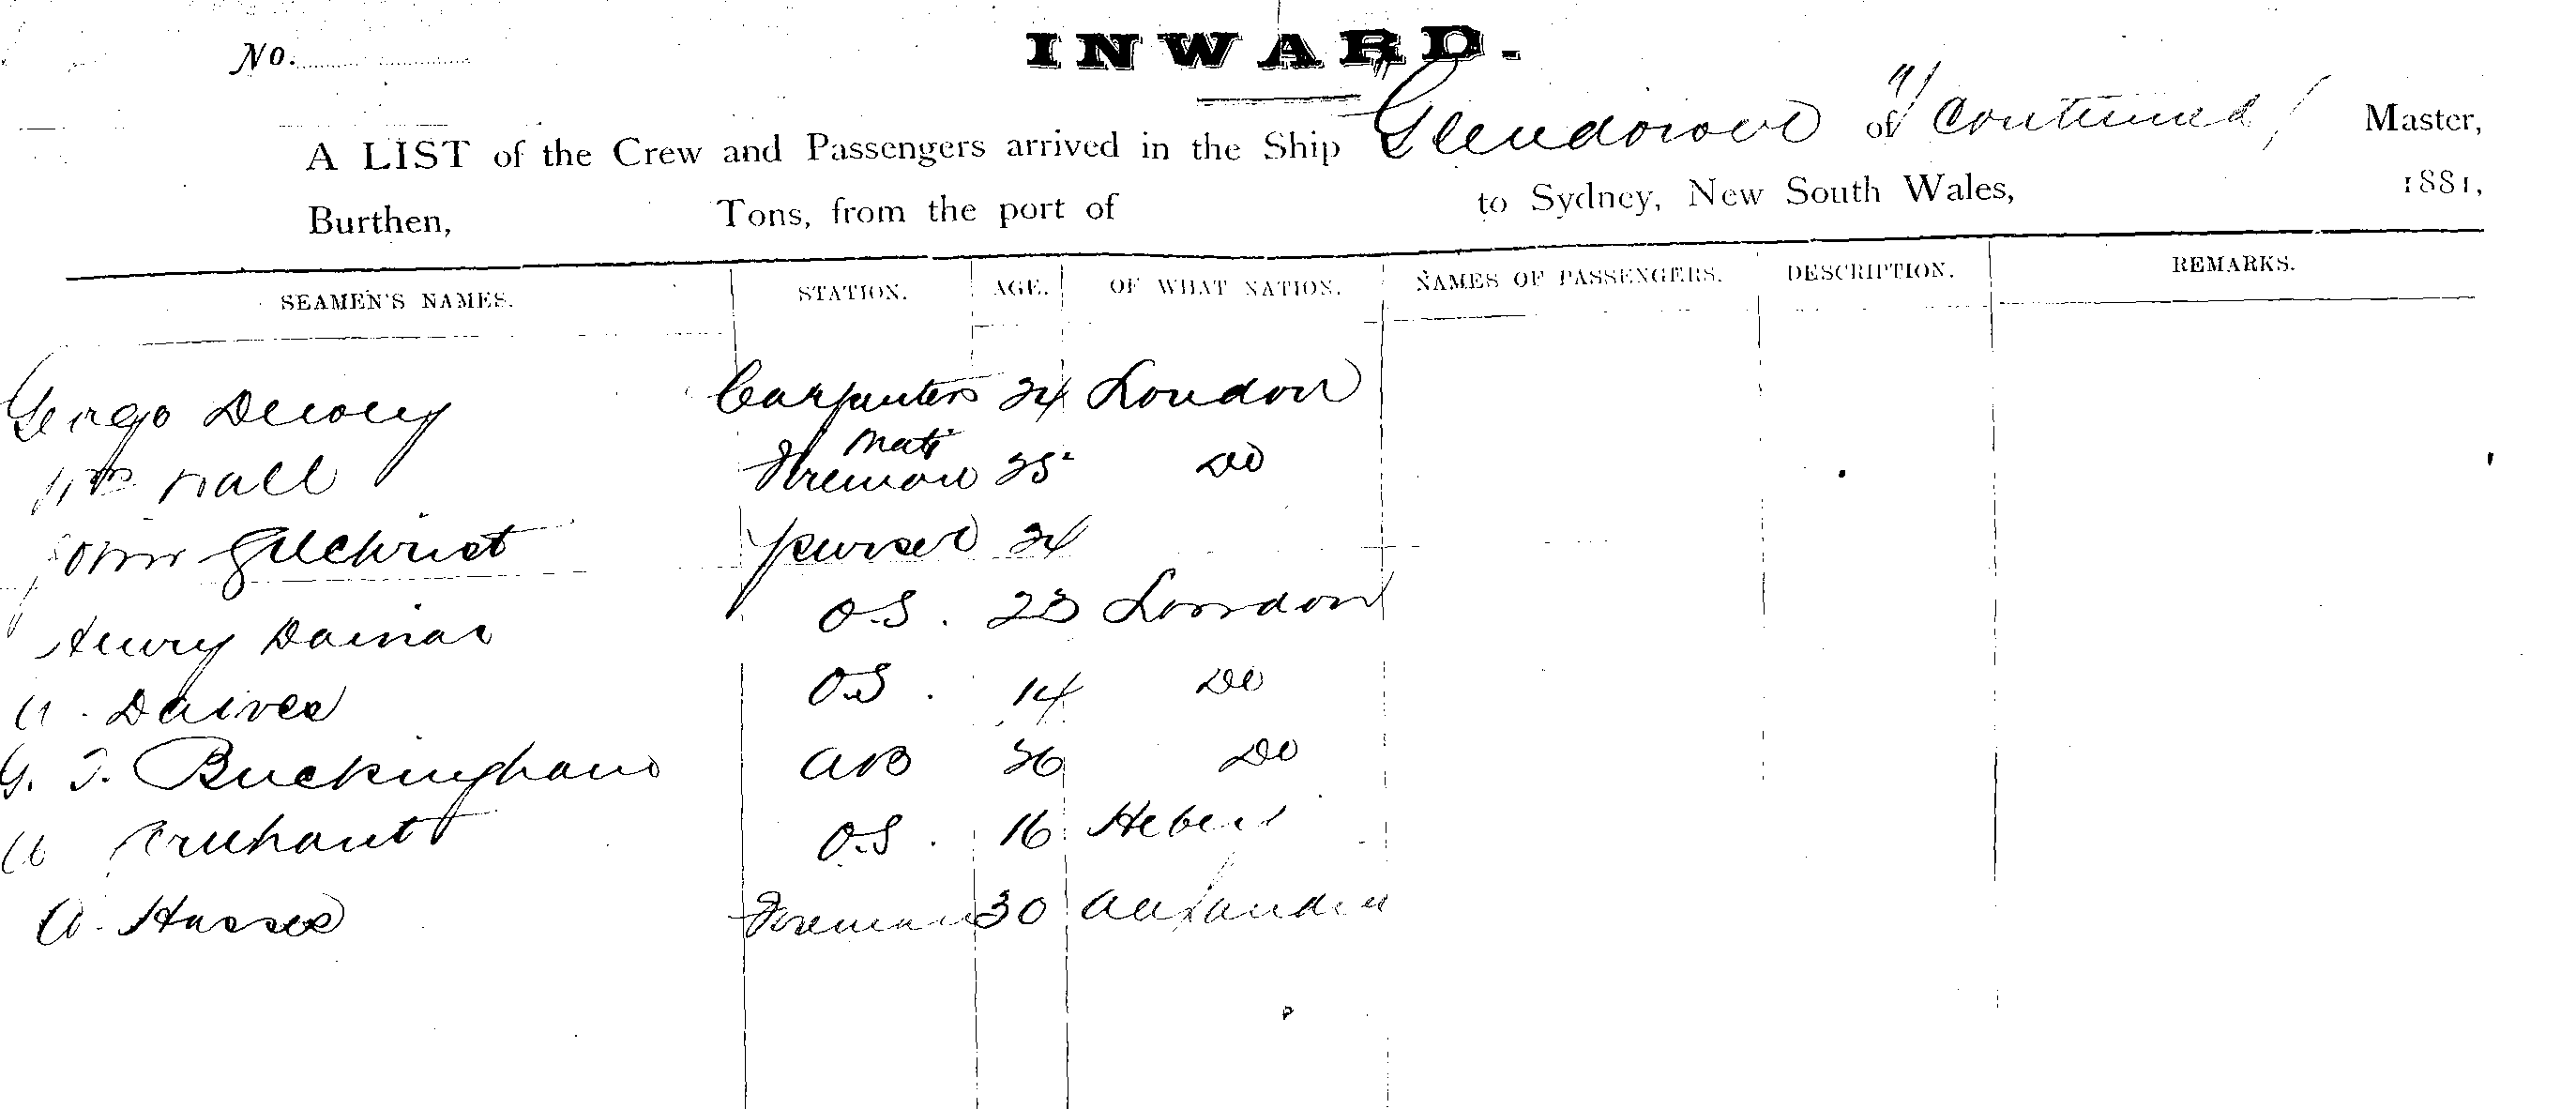 No.
INWARD.
A LIST of the Crew and Passengers arrived in the Ship "Glendower" of continued / Master,
Burthen, Tons, from the port of to Sydney, New South Wales, 1881,
SEAMEN'S NAMES. STATION. AGE. OF WHAT NATION. NAMES OF PASSENGERS. DESCRIPTION. REMARKS.
Carpenters 24 London
Mate
Wm Hall Fireman 25 Do
John Gilchrist purser 24
Henry O.S. 23 London
O.S. 14 Do
G. T. Buckingham AB 36 Do
O.S. 16
Fireman 30 Alexandria